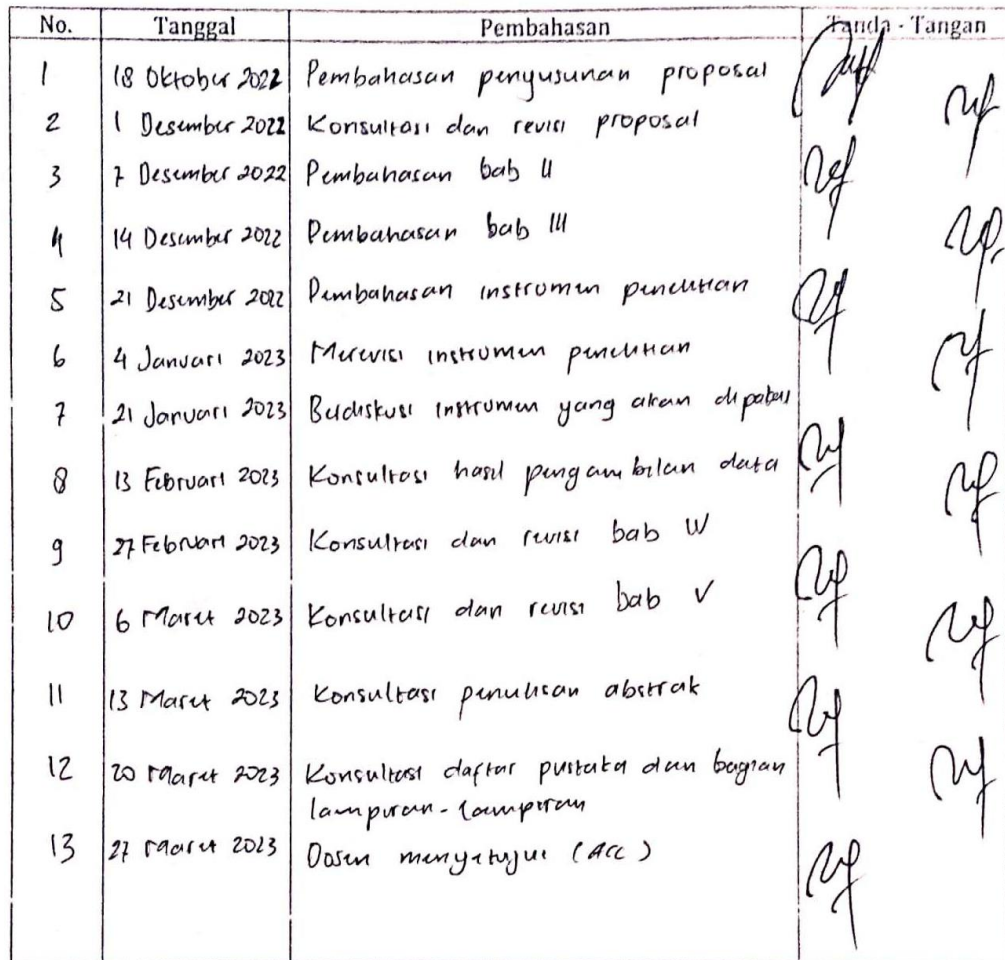 No. Tanggal Pembahasan Tanda - Tangan
1 18 Oktober 2022 Pembahasan penyusunan proposal
2 1 Desember 2022 Konsultasi dan revisi proposal
3 7 Desember 2022 Pembahasan bab II
4 14 Desember 2022 Pembahasan bab III
5 21 Desember 2022 Pembahasan instrumen penelitian
6 4 Januari 2023 Merevisi instrumen penelitian
7 21 Januari 2023 Berdiskusi instrumen yang akan
8 13 Februari 2023 Konsultasi hasil pengambilan data
9 27 Februari 2023 Konsultasi dan revisi bab IV
10 6 Maret 2023 Konsultasi dan revisi bab V
11 13 Maret 2023 Konsultasi penulisan abstrak
12 20 Maret 2023 Konsultasi daftar pustaka dan bagian
lampiran-lampiran
13 27 Maret 2023 Dosen menyetujui (ACC)